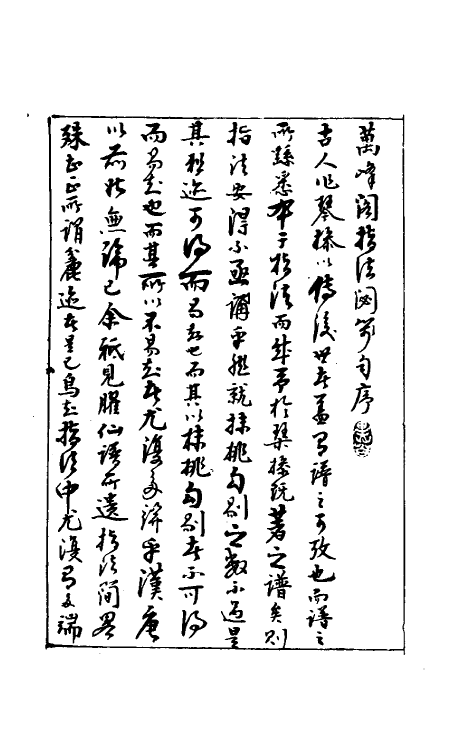 萬峰閣指法閟箋自序
古人作琴操以傳後世者蓋有譜之可攷也而譜之
所繇悉本于指法而於琴操既著之譜矣則
指法安得不亟講乎然就抹挑勾剔之數不過是
其粗迹可得而易知也而其以抹挑勾剔者不可得
而易知也而其所以不易知者尤復多乎漢唐
以前非無譜已余祇見臞仙譜所遺指法簡畧
殊甚正所謂麤迹者是已烏知指法中尤復有多端